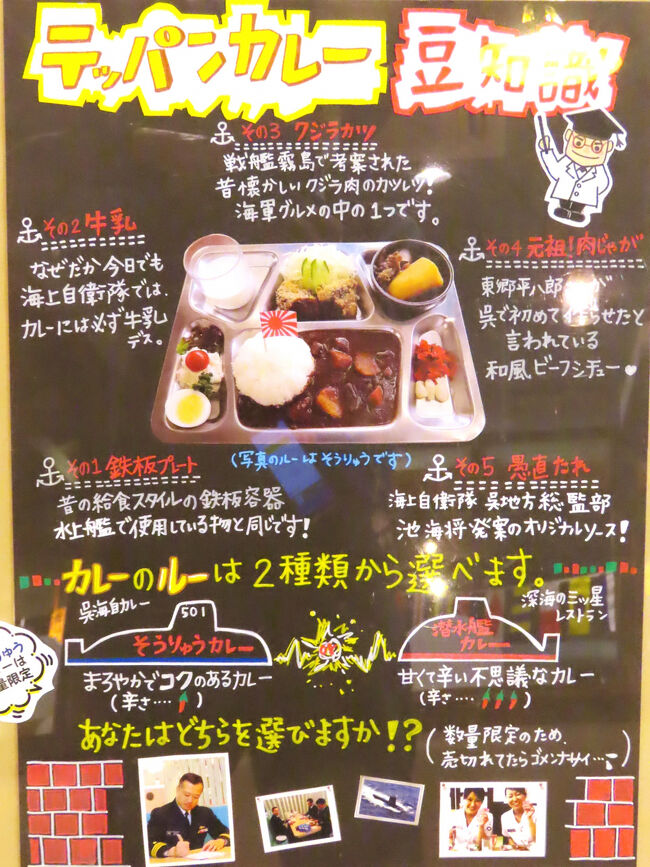 テッパンカレー 豆知識
その3 クジラカツ
戦艦霧島で考案された
昔懐かしいクジラ肉のカツレツ!
海軍グルメの中の1つです。
その2 牛乳
なぜだか今日でも
海上自衛隊では、
カレーには必ず牛乳
デス。
その4 元祖!肉じゃが
東郷平八郎
呉で初めて
らせたと
言われている
和風ビーフシチュー
その1 鉄板プレート
昔の給食スタイルの鉄板容器
水上艦で使用している物と同じです!
(写真のルーはそうりゅうです)
その5 愚直たれ
海上自衛隊 呉地方総監部
池海将発案のオリジナルソース!
カレーのルーは2種類から選べます。
呉海自カレー
501
そうりゅうカレー
まろやかでコクのあるカレー
(辛さ‥‥ )
深海の三ツ星
レストラン
潜水艦
カレー
甘くて辛い不思議なカレー
(辛さ‥‥ )
りゅう
ーは
量限定
あなたはどちらを選びますか!?
(数量限定のため、
売切れてたらゴメンナサイ…)